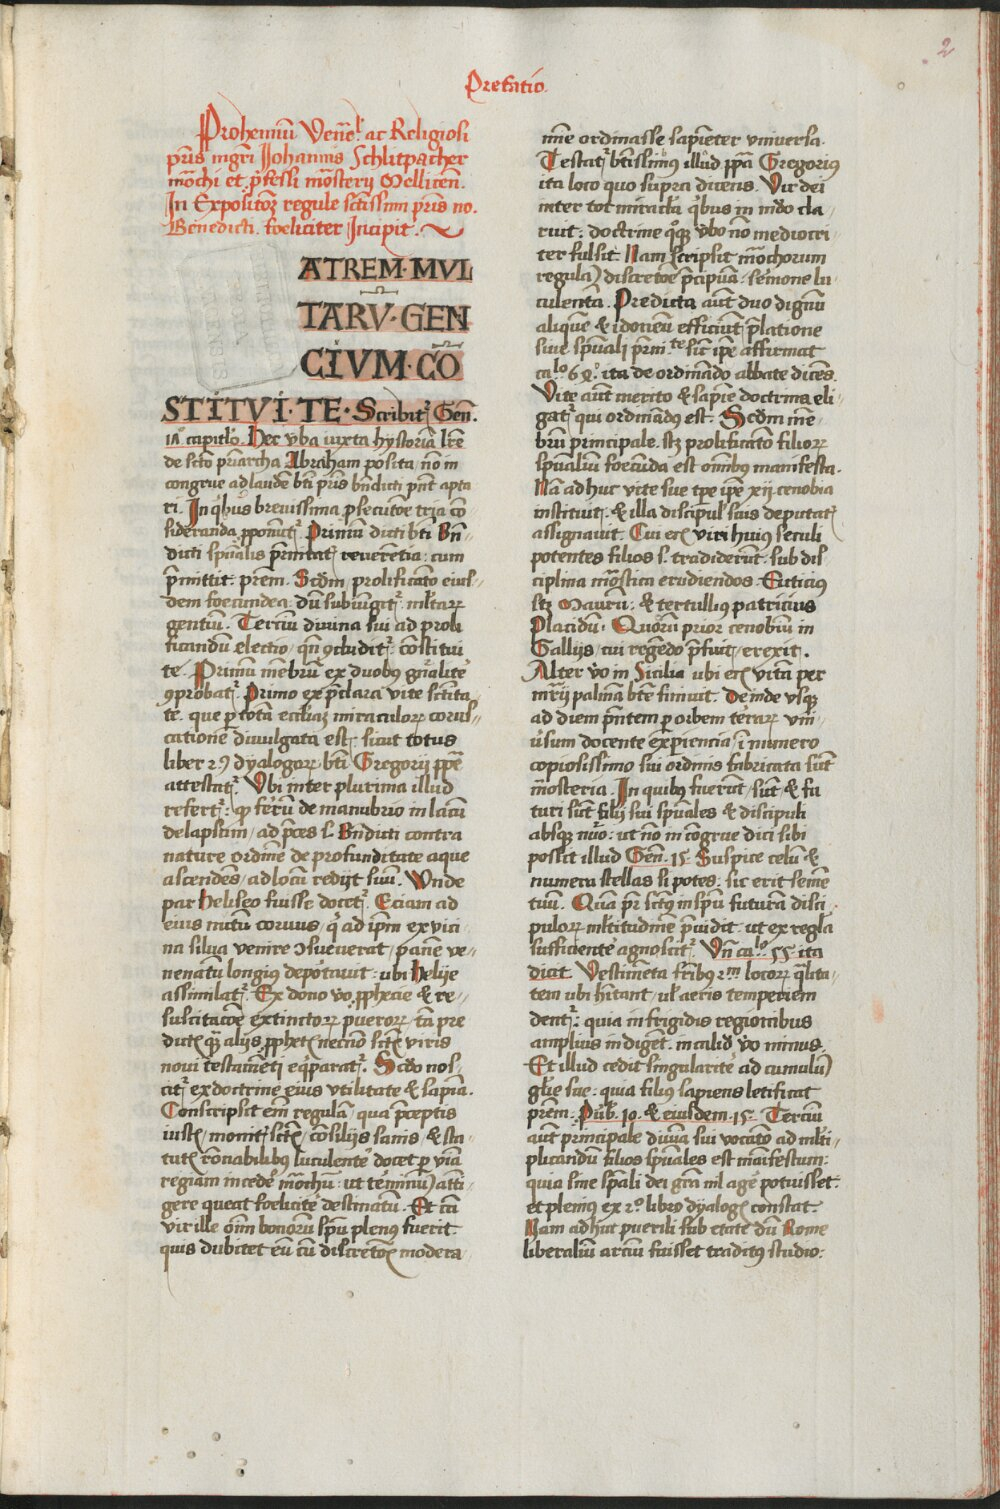 2
Prefatio
Prohemiū Veñel̕ ac Religiosi
pr̄is mgr̄i Johannis Schlitpacher
mōchi et p̄fessi mōsterij Mellicen̄.
In Expositōꝫ regule sctīssimi pr̄is nr̄i
Benedicti. foeliciter Incipit.
ATREM·MVL
TARV̄·GEN
CIVM·CŌ
STITVI·TE·Scribit᷑ Gen̄.
17 capitl̕o. Hec v̓ba iuxta hystoriā lr̄e
de sctō pr̄iarcha Abraham posita, nō in
congrue ad laudē bt̄i pr̄is bn̄dicti pn̄t apta
ri. In qͥbus breuissima ꝓsecutōe tria cō
sideranda ꝓponūt᷑. Primū dicti bt̄i Bn̄
dicti spūalis pr̄imitat᷑ reuerētia: cum
p̄mittit: prēm. Scd̄m prolificatō eius⸗
dem foecundea: dū subiūgit᷑. mltarꝝ
gentiū. Terciū diuina sui ad proli
ficandū electio, qn̄ ꝯcludit᷑: cōstitui
te. Primū mēbrū ex duobꝯ gn̄alit̄e
ꝯprobat᷑. Primo ex p̄clara vite sctīta
te. que ꝑ totā eccliaꝫ miraculorꝝ corus⸗
catione diuulgata est: sicut totus
liber 2ꝯ dyalogorꝝ bt̄i Gregorij pp̄e
attestat᷑. Vbi inter plurima illud
refert᷑: ꝙ ferrū de manubrio in lacū
delapsum, ad p̄ces s. Bn̄dicti contra
nature ordinē de profunditate aque
ascendēs, ad locū redijt suū. Vnde
par heliseo fuisse docet᷑. Eciam ad
eius nutū coruus, qͥ ad ip̄m ex vici
na silua venire ꝯsueuerat, panē ve⸗
nenatū longius deportauit: ubi Helije
assimilat᷑. Ex dono v̓o ꝓphecie & re⸗
suscitacōe extinctorꝝ puerorꝝ, tā pre
dictꝭ qꝫ alijs ꝓphetꝭ necnō sctꝭ viris
noui testamēti eqͥparat᷑. Scd̄o nos⸗
cit᷑ ex doctrine eius vtilitate & sapiā.
Conscripsit em̄ regulā, qua p̄ceptis
iustꝭ, monitꝭ sctꝭ, cōsilijs sanis, & sta⸗
tutꝭ rōnabilibꝯ luculent̄e docet ꝑ viā
regiam incedē mōchū: ut terminū atti⸗
gere queat foelicit̄e destinatū. Et cū
vir ille om̄i bonorū spū plenꝯ fuerit
quis dubitet eū cū discretōe modera
mīe ordinasse sapiēter vniuersa.
Testat᷑ bt̄issimꝯ illud pp̄a Gregoriꝯ
ita loco quo supra dicens. Vir dei
inter tot miracl̕a qͥbus in mūdo cla
ruit: doctrine qͦqꝫ v̓bo nō mediocri
ter fulsit. Nam scripsit mōchorum
regulā discretōe p̄cipuā: sermone lu
culentā. Predicta aūt duo dignū
alique & idoneū efficiūt p̄latione
siue spūali pr̄nitᵗᵉ sicͧt ip̄e affirmat
caᵒ 64. ita de ordinādo abbate dicēs.
Vite aūt merito & sapiē doctrina eli⸗
gat᷑ qui ordinādꝯ est. Scd̄m mē
brū principale. scꝫ prolificatō filiorꝝ
spūaliū foecūda est omībꝯ manifesta.
Nā adhuc vite sue tꝑe ip̄e xij cenobia
instituit: & illa discipul̕ suis deputatꝭ
assignauit. Cui etꝭ viri huius seculi
potentes filios s. tradiderūt sub dis
ciplina mōstica erudiendos. Euticiꝯ
scꝫ Maurū: & tertullius patricius
Placidū: Quorū prior cenobiū in
Gallijs, cui regēdo p̄fuit, erexit.
Alter v̓o in Sicilia ubi etꝭ vitā per
mr̄ij palmā bt̄e finiuit. Deinde vsqꝫ
ad diem pn̄tem ꝑ orbem terrarꝝ vni⸗
u̓sum docente experiencia, ī numero
copiosissimo sui ordinis fabricata sūt
mōsteria. In quibꝯ fuerūt, sūt & fu
turi sūt filij sui spūales & discipuli
absqꝫ nūo: ut nō in cōgrue dici sibi
possit illud Gen̄. 15. Suspice celū &
numera stellas si potes: sic erit semē
tuū. Quā pr̄ sctꝯ in spū futurā disci
pulorꝝ mltitudinē p̄uidit: ut ex regl̕a
sufficient̄e agnoscit᷑. Vn̄ caˡᵒ 55 ita
dicit. Vestimēta fr̄ibꝯ 2ᵐ locorꝝ qͣlita⸗
tem ubi hītant, ul̕ aeris temperiem
dent᷑: quia in frigidis regionibus
amplius indiget: in calid̕ v̓o minus.
Et illud cedit singularit̄e ad cumulū
gl̄ie sue: quia filius sapiens letificat
prēm. Pūb̄. 10. & eiusdem. 15. Terciū
aūt principale diuīa sui vocatō ad mlti⸗
plicandū filios spūales est māifestum:
quia sine sp̄ali dei gr̄a nil age̓ potuisset:
et plenius ex 2ᵒ libro dyalogꝭ constat
Nam adhuc puerili sub etate dū Rome
liberaliū arciū fuisset traditꝯ studio: